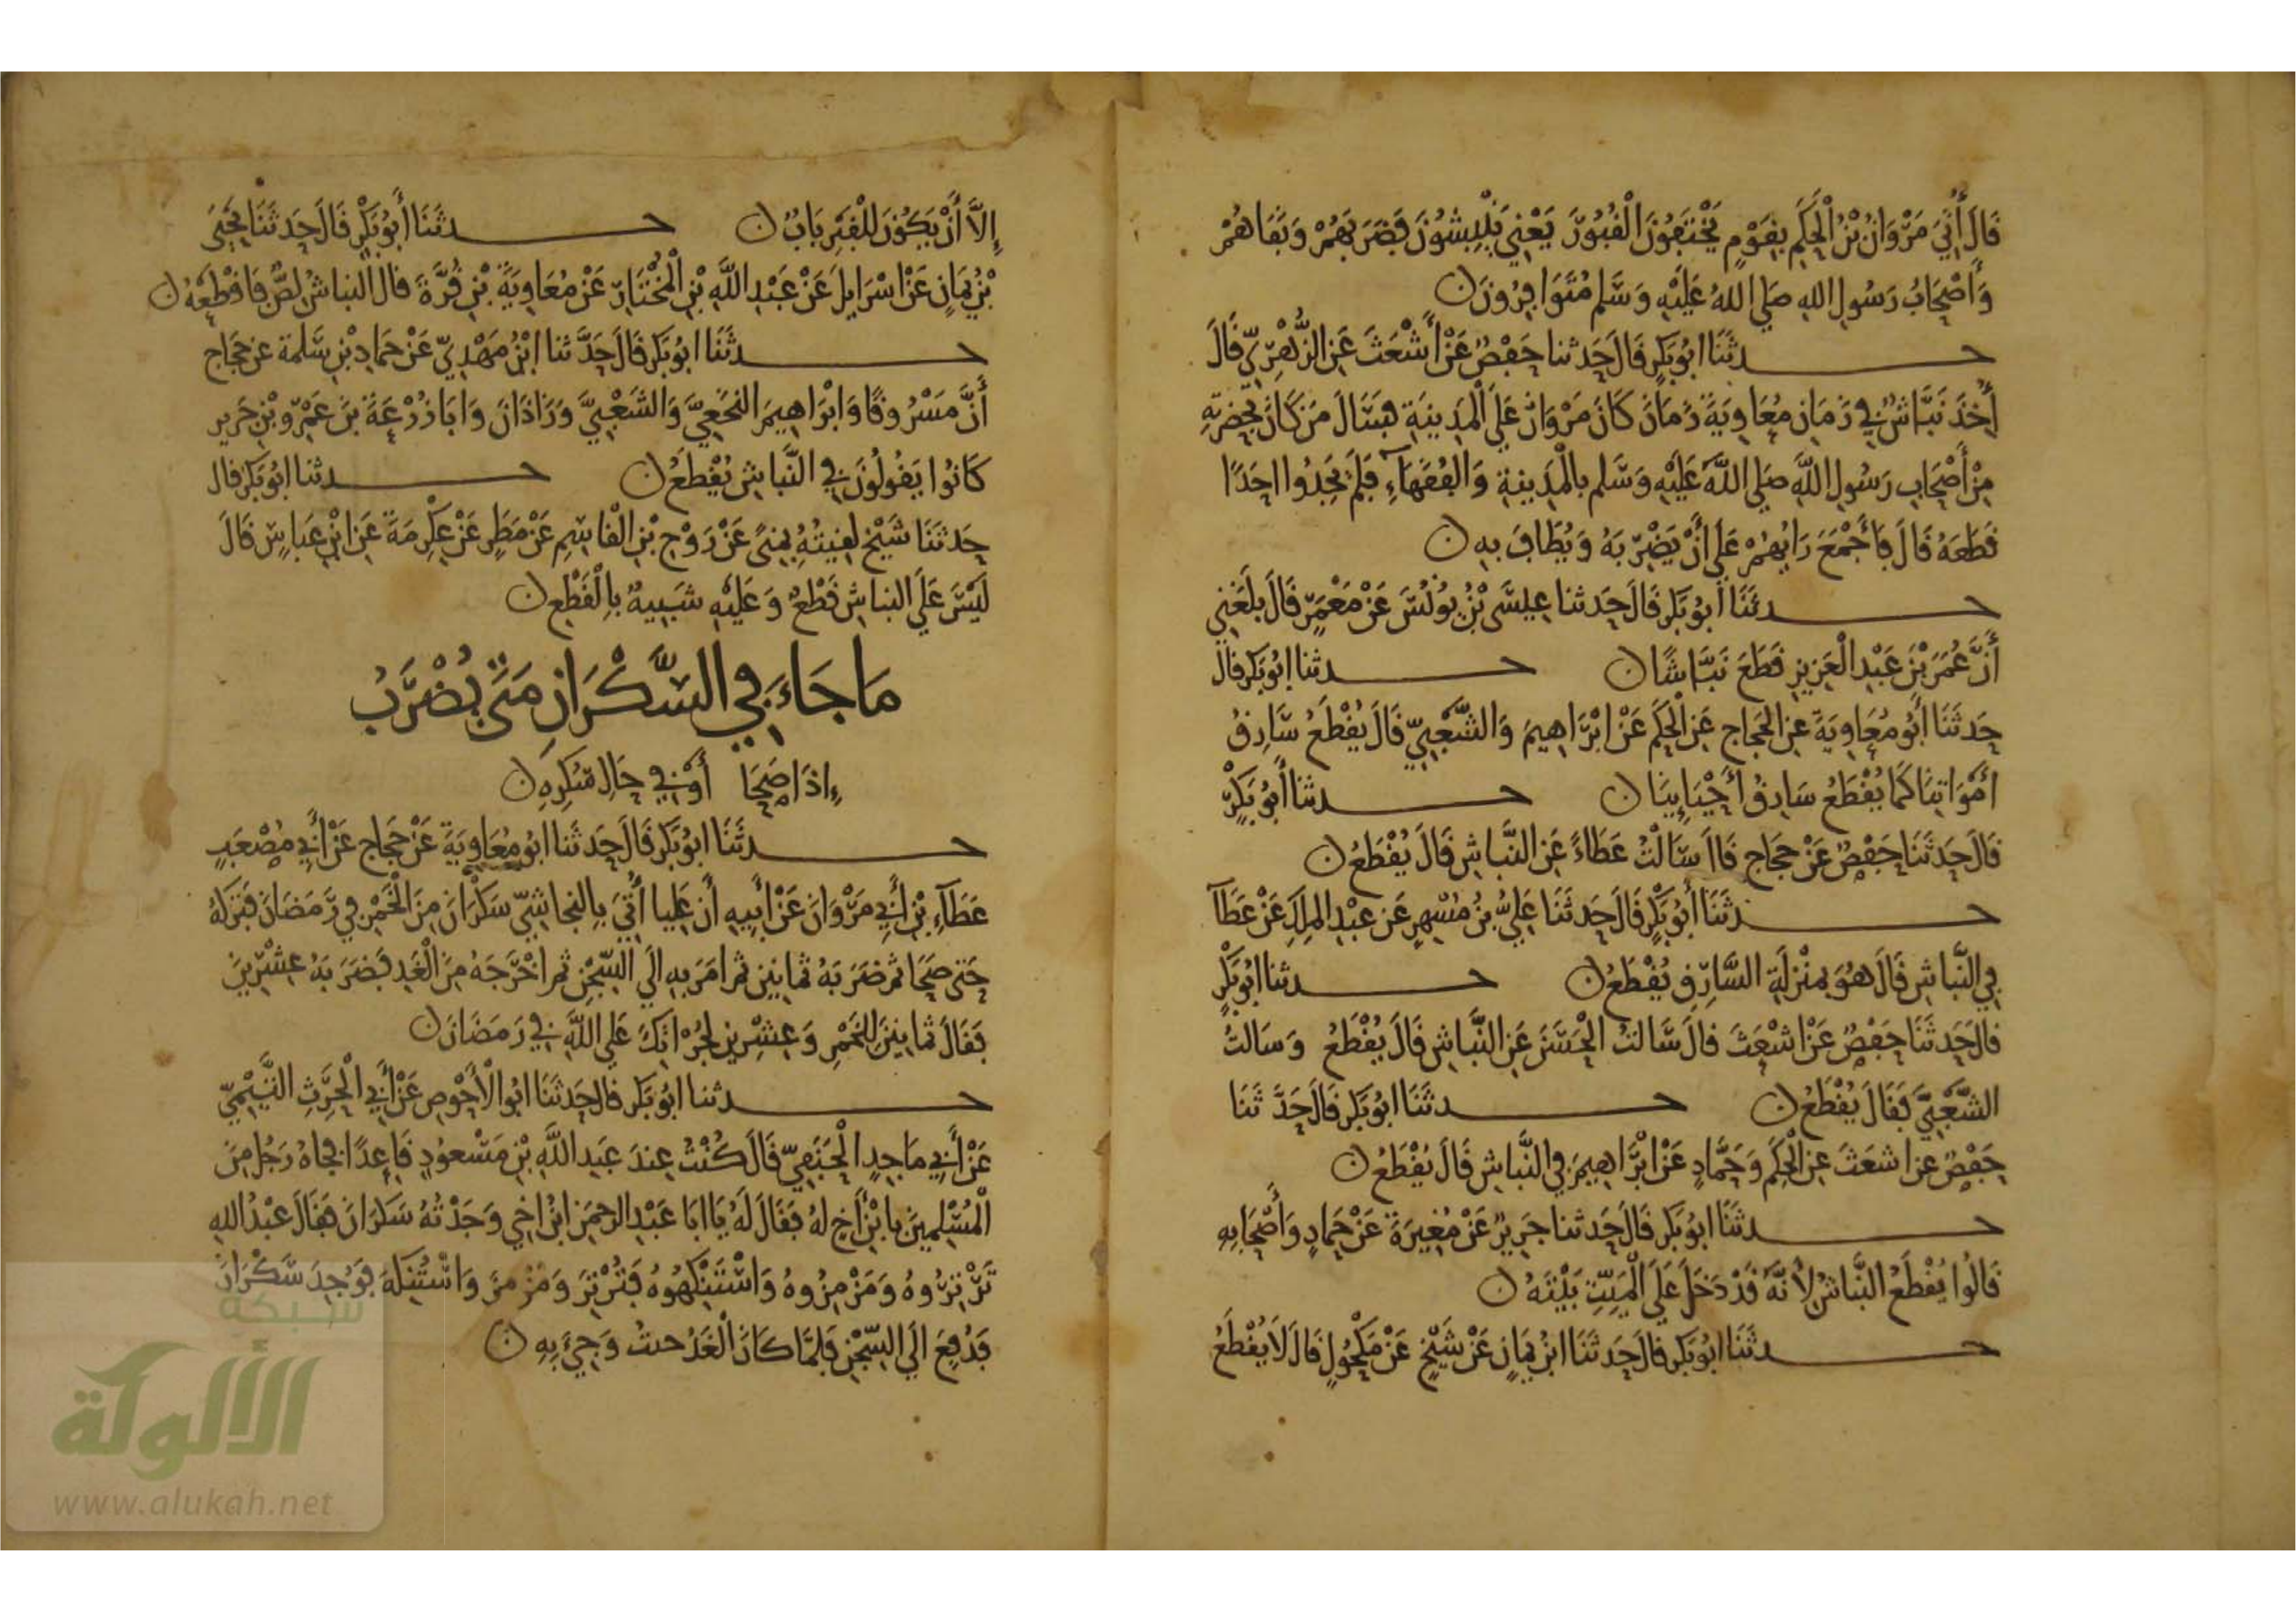 قَالَ أُتِيَ مَرْوَانُ بْنُ الْحَكَمِ بِقَوْمٍ يَخْتَفُونَ الْقُبُورَ يَعْنِي يَنْبِشُونَ فَضَرَبَهُمْ وَنَفَاهُمْ
وَأَصْحَابُ رَسُولِ اللهِ صَلى اللهُ عَلَيْهِ وَسَلم مُتَوَافِرُونَ ن
حدثَنَا ابُو بَكرٍ قَالَ حَدثنا حَفْصٌ عَنْ أَشْعَثَ عَنِ الزُّهْرِيّ قَالَ
أُخِذَ نَبَّاشٌ فِي زَمَانِ مُعَاوِيَةَ زَمَانَ كَانَ مَرْوَانُ عَلَى الْمَدِينَةِ فسَالَ مَنْ كَانَ بِحَضرَتِهِ
مِنْ أَصْحَابِ رَسُولِ اللَّهِ صَلى اللَّهُ عَلَيْهِ وَسَلم بِالْمَدِينةِ وَالفُقَهَاءِ فَلَمْ يَجِدُوا احَدًا
قَطَعَهُ قَالَ فَأَجْمَعَ رَايُهُمْ عَلَى أَنْ يَضْرِبَهُ وَيُطَافَ بِهِ ن
حدثَنَا أَبُو بَكر قَالَ حَدثنا عِيسَى بْنُ يُونُسَ عَنْ مَعْمَرٍ قَالَ بَلَغَنِي
أَنَّ عُمَرَ بْنَ عَبْدِ الْعَزِيزِ قَطَعَ نَبَّاشًا ن حدثنا ابُو بَكر قال
حَدثَنَا أَبُو مُعَاوِيَةَ عنِ الحَجاج عَنِ الْحَكَمِ عَنْ ابْرَاهِيمَ وَالشَّعْبِيّ قَالَ يُقْطَعُ سَارِقُ
أمْوَاتِنَا كَمَا يُقْطَعُ سَارِقُ أَحْيَايِنَا ن حدثنا أَبُو بَكْرٍ
قَالَ حَدثَنَا حَفْصٌ عَنْ حَجَاجٍ قَالَ سَالْتُ عَطَاءً عَنِ النَّبَاشِ قَالَ يُقْطَعُ ن
حدثَنَا أَبُو بَكْرٍ قَالَ حَدثَنَا عَلِيُّ بْنُ مُسْهِرٍ عَن عبْدِ الملِكِ عَنْ عَطَآ
فِي النَّبَاشِ قَالَ هُوَ بِمَنْزِلَةِ السَّارِقِ يُقْطَعُ ن حدثنا ابُو بَكْرٍ
قال حَدثَنَا حَفْصٌ عَنْ اشْعَثَ قالَ سَالتُ الْحَسَنَ عَنِ النَّباشِ قَالَ يُقْطَعُ وَسَالتُ
الشَّعْبِيَّ فَقَالَ يُقْطَعُ ن حدثَنَا ابُو بَكر قَالَ حَدَّثَنَا
حَفْصٌ عن اشعَثَ عنِ الحَكَمِ وَحَمَّادٍ عَنْ ابْرَاهِيمَ فِي النَّباشِ قَالَ يُقْطَعُ ن
حدثَنَا ابُو بَكر قَالَ حَدثنا جَرِيرٌ عَنْ مُغِيرَةَ عَنْ حَمادٍ وَأَصْحَابِهِ
قَالُوا يُقْطَعُ النَّباشُ لأنَّهُ قَدْ دَخَلَ عَلَى الْمَيِّتِ بَيْتَهُ ن
حدثَنَا ابُو بَكر قالَ حَدثَنَا ابْنُ يَمَانٍ عَنْ شَيْخٍ عَنْ مَكْحُولٍ قَالَ لَا يُقْطَعُ
إِلَّا أَنْ يَكُونَ لِلْقَبْرِ بَابٌ ن حدثَنَا أَبُو بَكْرٍ قَالَ حَدثَنَا يَحْيَى
بْنُ يَمَانٍ عَنْ اسْرَايِلَ عَنْ عَبْدِ اللَّهِ بْنِ الْمُخْتَارِ عَنْ مُعَاوِيَةَ بْنِ قُرَّةَ قال النباشُ لِصٌّ فَاقْطَعْهُ ن
حدثَنَا ابُو بَكر قَالَ حَدَّثنا ابْنُ مَهْدِيّ عَنْ حَمادِ بْنِ سَلمة عن حَجاج
أَنَّ مَسْرُوقًا وَابْرَاهِيمَ النخَعِيَّ وَالشَعْبِيَّ وَزَاذَانَ وَابَا زُرْعَةَ بنَ عَمْرِو بْنِ جَرِير
كَانُوا يَقُولُونَ فِي النَّبَاشِ يُقْطَعُ ن حدثنا ابُو بَكر قال
حَدثَنَا شَيْخٌ لَقِيتُهُ بِمِنًى عَنْ رَوْحِ بْنِ الْقَاسِمِ عَنْ مَطَرٍ عَنْ عِكْرِمَةَ عَنِ ابْنِ عَبَاسٍ قَالَ
لَيْسَ عَلَى النباشِ قَطْعٌ وَعَلَيْهِ شَبِيهٌ بِالْقَطْعِ ن
مَا جَاءَ فِي السَّكْرَانِ مَتَى يُضْرَبُ
إِذَا صَحَا أَوْ فِي حَالِ سُكرِهِ ن
حدثَنَا ابُو بَكر قَالَ حَدثَنا ابُو مُعَاوِيَةَ عَنْ حَجاج عَنْ أَبِي مُصْعَبٍ
عَطَآءِ بْنِ أَبِي مَرْوَانَ عَنْ أَبِيهِ أَن عَلِيا أُتِيَ بِالنجاشِيّ سَكْرَانَ مِنَ الْخَمْرِ فِي رَمَضَانَ فَتَرَكَهُ
حَتى صَحَا ثم ضَرَبَهُ ثمانِين ثم امَرَ بِهِ الَى السِّجْنِ ثم اخْرَجَهُ مِنَ الْغَدِ فَضَرَبَهُ عِشْرِينَ
فَقَالَ ثمانِينَ لِلْخَمْرِ وَعِشْرِين لِجُرْاتِكَ عَلَى اللَّهِ فِي رَمَضَانَ ن
حدثنا ابُو بَكر قال حَدثَنَا ابُو الْأَحْوَصِ عَنْ أَبِي الْحرِثِ التَّيْمِيّ
عَنْ أَبِي مَاجِدٍ الْحَنَفِيّ قَالَ كُنْتُ عِندَ عَبْدِ اللَّهِ بْنِ مَسْعودٍ قَاعِدًا فجاهُ رَجُل مِنَ
الْمُسْلِمِينَ بِابْنِ أَخٍ لَهُ فَقَالَ لَهُ يَا ابَا عَبْدِ الرحمَن ابْنُ اخِي وَجَدْتُهُ سَكرَانَ فقَالَ عَبْدُ اللهِ
تَرْتِرُوهُ وَمَزْمِزُوهُ وَاسْتَنْكِهُوهُ فَتُرْتِرَ وَمُزْمِزَ وَاسْتُنْكِهَ فوُجِدَ سَكْرَانَ
فَدُفِعَ الَى السِّجْنِ فَلَمَّا كَانَ الْغَدُ جئتُ وَجِيءَ بِهِ ن
شبكة
الألوكة
www.alukah.net